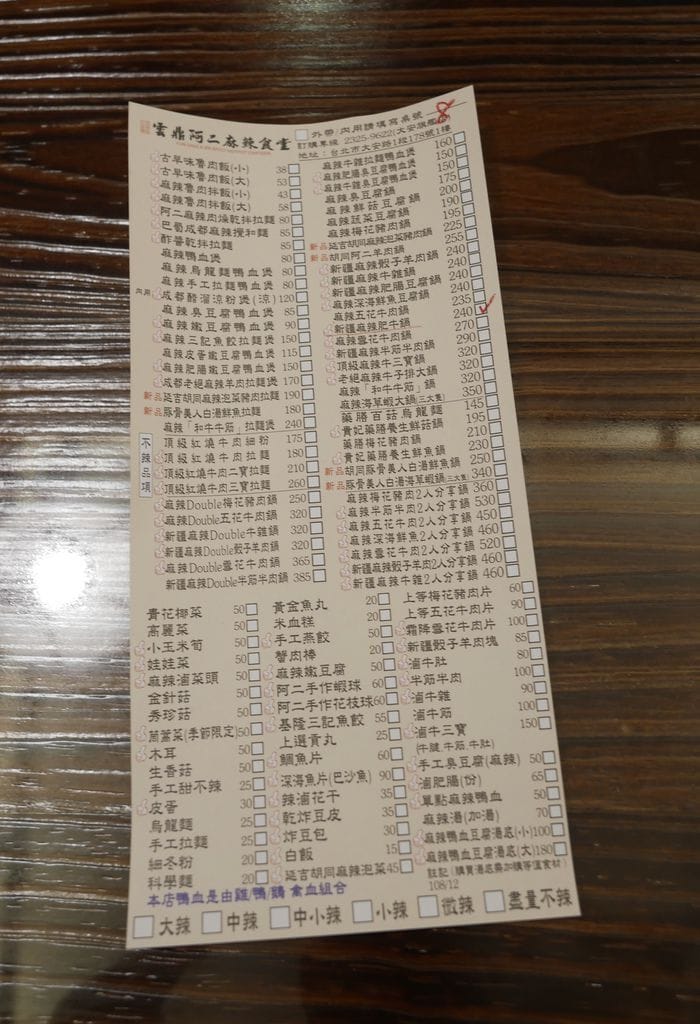 雲鼎阿二麻辣食堂
外帶/內用請填寫桌號 8
訂購專線 2325-9622(大安旗艦店)
地址：台北市大安路1段178號1樓
古早味魯肉飯(小) 38
古早味魯肉飯(大) 53
麻辣魯肉拌飯(小) 43
麻辣魯肉拌飯(大) 58
阿二麻辣肉燥乾拌拉麵 80
巴蜀成都麻辣攪和麵 85
酢醬乾拌拉麵 85
麻辣鴨血煲 80
麻辣烏龍麵鴨血煲 80
麻辣手工拉麵鴨血煲 80
內用 成都醋溜涼粉煲(涼) 120
麻辣臭豆腐鴨血煲 85
麻辣嫩豆腐鴨血煲 90
麻辣三記魚餃拉麵煲 150
麻辣皮蛋嫩豆腐鴨血煲 115
麻辣肥腸嫩豆腐鴨血煲 150
成都老滷麻辣羊肉拉麵煲 170
新品 延吉胡同麻辣泡菜豬肉拉麵煲 190
新品 豚骨美人白湯鮮魚拉麵 180
麻辣「和牛牛筋」拉麵煲 240
不辣品項
頂級紅燒牛肉細粉 175
頂級紅燒牛肉拉麵 180
頂級紅燒牛肉二寶拉麵 210
頂級紅燒牛肉三寶拉麵 260
麻辣Double梅花豬肉鍋 250
麻辣Double五花牛肉鍋 320
新疆麻辣Double牛雜鍋 320
新疆麻辣Double骰子羊肉鍋 320
麻辣Double雪花牛肉鍋 365
新疆麻辣Double半筋半肉鍋 385
麻辣牛雜拉麵鴨血煲 160
麻辣肥腸臭豆腐鴨血煲 150
麻辣牛雜臭豆腐鴨血煲 150
麻辣臭豆腐鍋 175
麻辣鮮菇豆腐鍋 200
麻辣蔬菜豆腐鍋 190
麻辣梅花豬肉鍋 195
新品 延吉胡同麻辣泡菜豬肉鍋 225
新品 胡同阿二羊肉鍋 255
新疆麻辣骰子羊肉鍋 240
新疆麻辣牛雜鍋 240
新疆麻辣肥腸豆腐鍋 240
麻辣深海鮮魚豆腐鍋 240
麻辣五花牛肉鍋 235
新疆麻辣肥牛鍋 240
麻辣雪花牛肉鍋 270
新疆麻辣半筋半肉鍋 290
頂級麻辣牛三寶鍋 320
老滷麻辣牛子排大鍋 320
麻辣「和牛牛筋」鍋 320
麻辣海草蝦大鍋(三大隻) 350
藥膳百菇烏龍麵 145
貴妃藥膳養生鮮菇鍋 195
藥膳梅花豬肉鍋 210
貴妃藥膳養生鮮魚鍋 230
新品 胡同豚骨美人白湯鮮魚鍋 250
新品 豚骨美人白湯海草蝦鍋(三大隻) 340
麻辣梅花豬肉2人分享鍋 360
麻辣半筋半肉2人分享鍋 530
麻辣五花牛肉2人分享鍋 450
麻辣深海鮮魚2人分享鍋 460
麻辣雪花牛肉2人分享鍋 520
新疆麻辣骰子羊肉2人分享鍋 460
新疆麻辣牛雜2人分享鍋 460
青花椰菜 50
高麗菜 50
小玉米筍 50
娃娃菜 50
麻辣滷菜頭 50
金針菇 50
秀珍菇 50
茼蒿菜(季節限定) 50
木耳 50
生香菇 50
手工甜不辣 25
皮蛋 30
烏龍麵 25
手工拉麵 25
細冬粉 20
科學麵 20
黃金魚丸 20
米血糕 20
手工燕餃 50
蟹肉棒 20
麻辣嫩豆腐 50
阿二手作蝦球 60
阿二手作花枝球 60
基隆三記魚餃 55
上選貢丸 25
鯛魚片 60
深海魚片(巴沙魚) 90
辣滷花干 35
乾炸豆皮 35
炸豆包 30
白飯 15
延吉胡同麻辣泡菜 45
上等梅花豬肉片 60
上等五花牛肉片 90
霜降雪花牛肉片 100
新疆骰子羊肉塊 85
滷牛肚 80
半筋半肉 100
滷牛雜 90
滷牛筋 100
滷牛三寶 150
(牛腱.牛筋.牛肚)
手工臭豆腐(麻辣) 50
滷肥腸(份) 65
單點麻辣鴨血 50
麻辣(加湯) 70
麻辣鴨血豆腐湯底(小) 100
麻辣鴨血豆腐湯底(大) 180
註記(購買湯底需加購等值食材)
108/12
本店鴨血是由雞/鴨/鵝 禽血組合
大辣 中辣 中小辣 小辣 微辣 盡量不辣